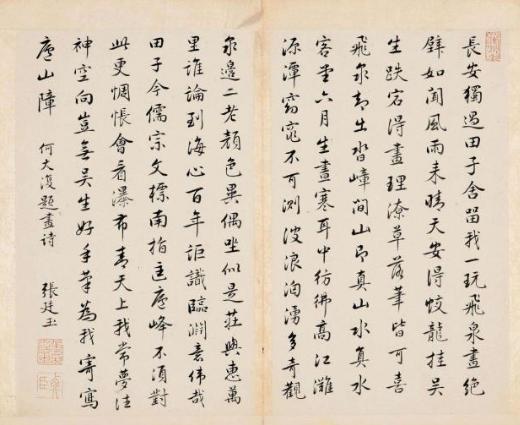 長安獨遇田子舍留我一玩飛泉畫絕
壁如聞風雨来晴天安得蛟龍挂吴
生跌宕得畫理潦草落筆皆可喜
飛泉却出沓嶂間山即真山水真水
客堂六月生晝寒耳中彷彿高江灘
源潭窈窕不可測波浪洶湧多奇觀
泉邊二老顔色異偶坐似是莊與惠萬
里誰論到海心百年詎識臨淵意偉哉
田子今儒宗文標南指匡廬峰不須對
此更惆悵會看瀑布青天上我常夢往
神空向豈無吴生好手筆為我寄寫
廬山障 何大復題畫诗 張廷玉